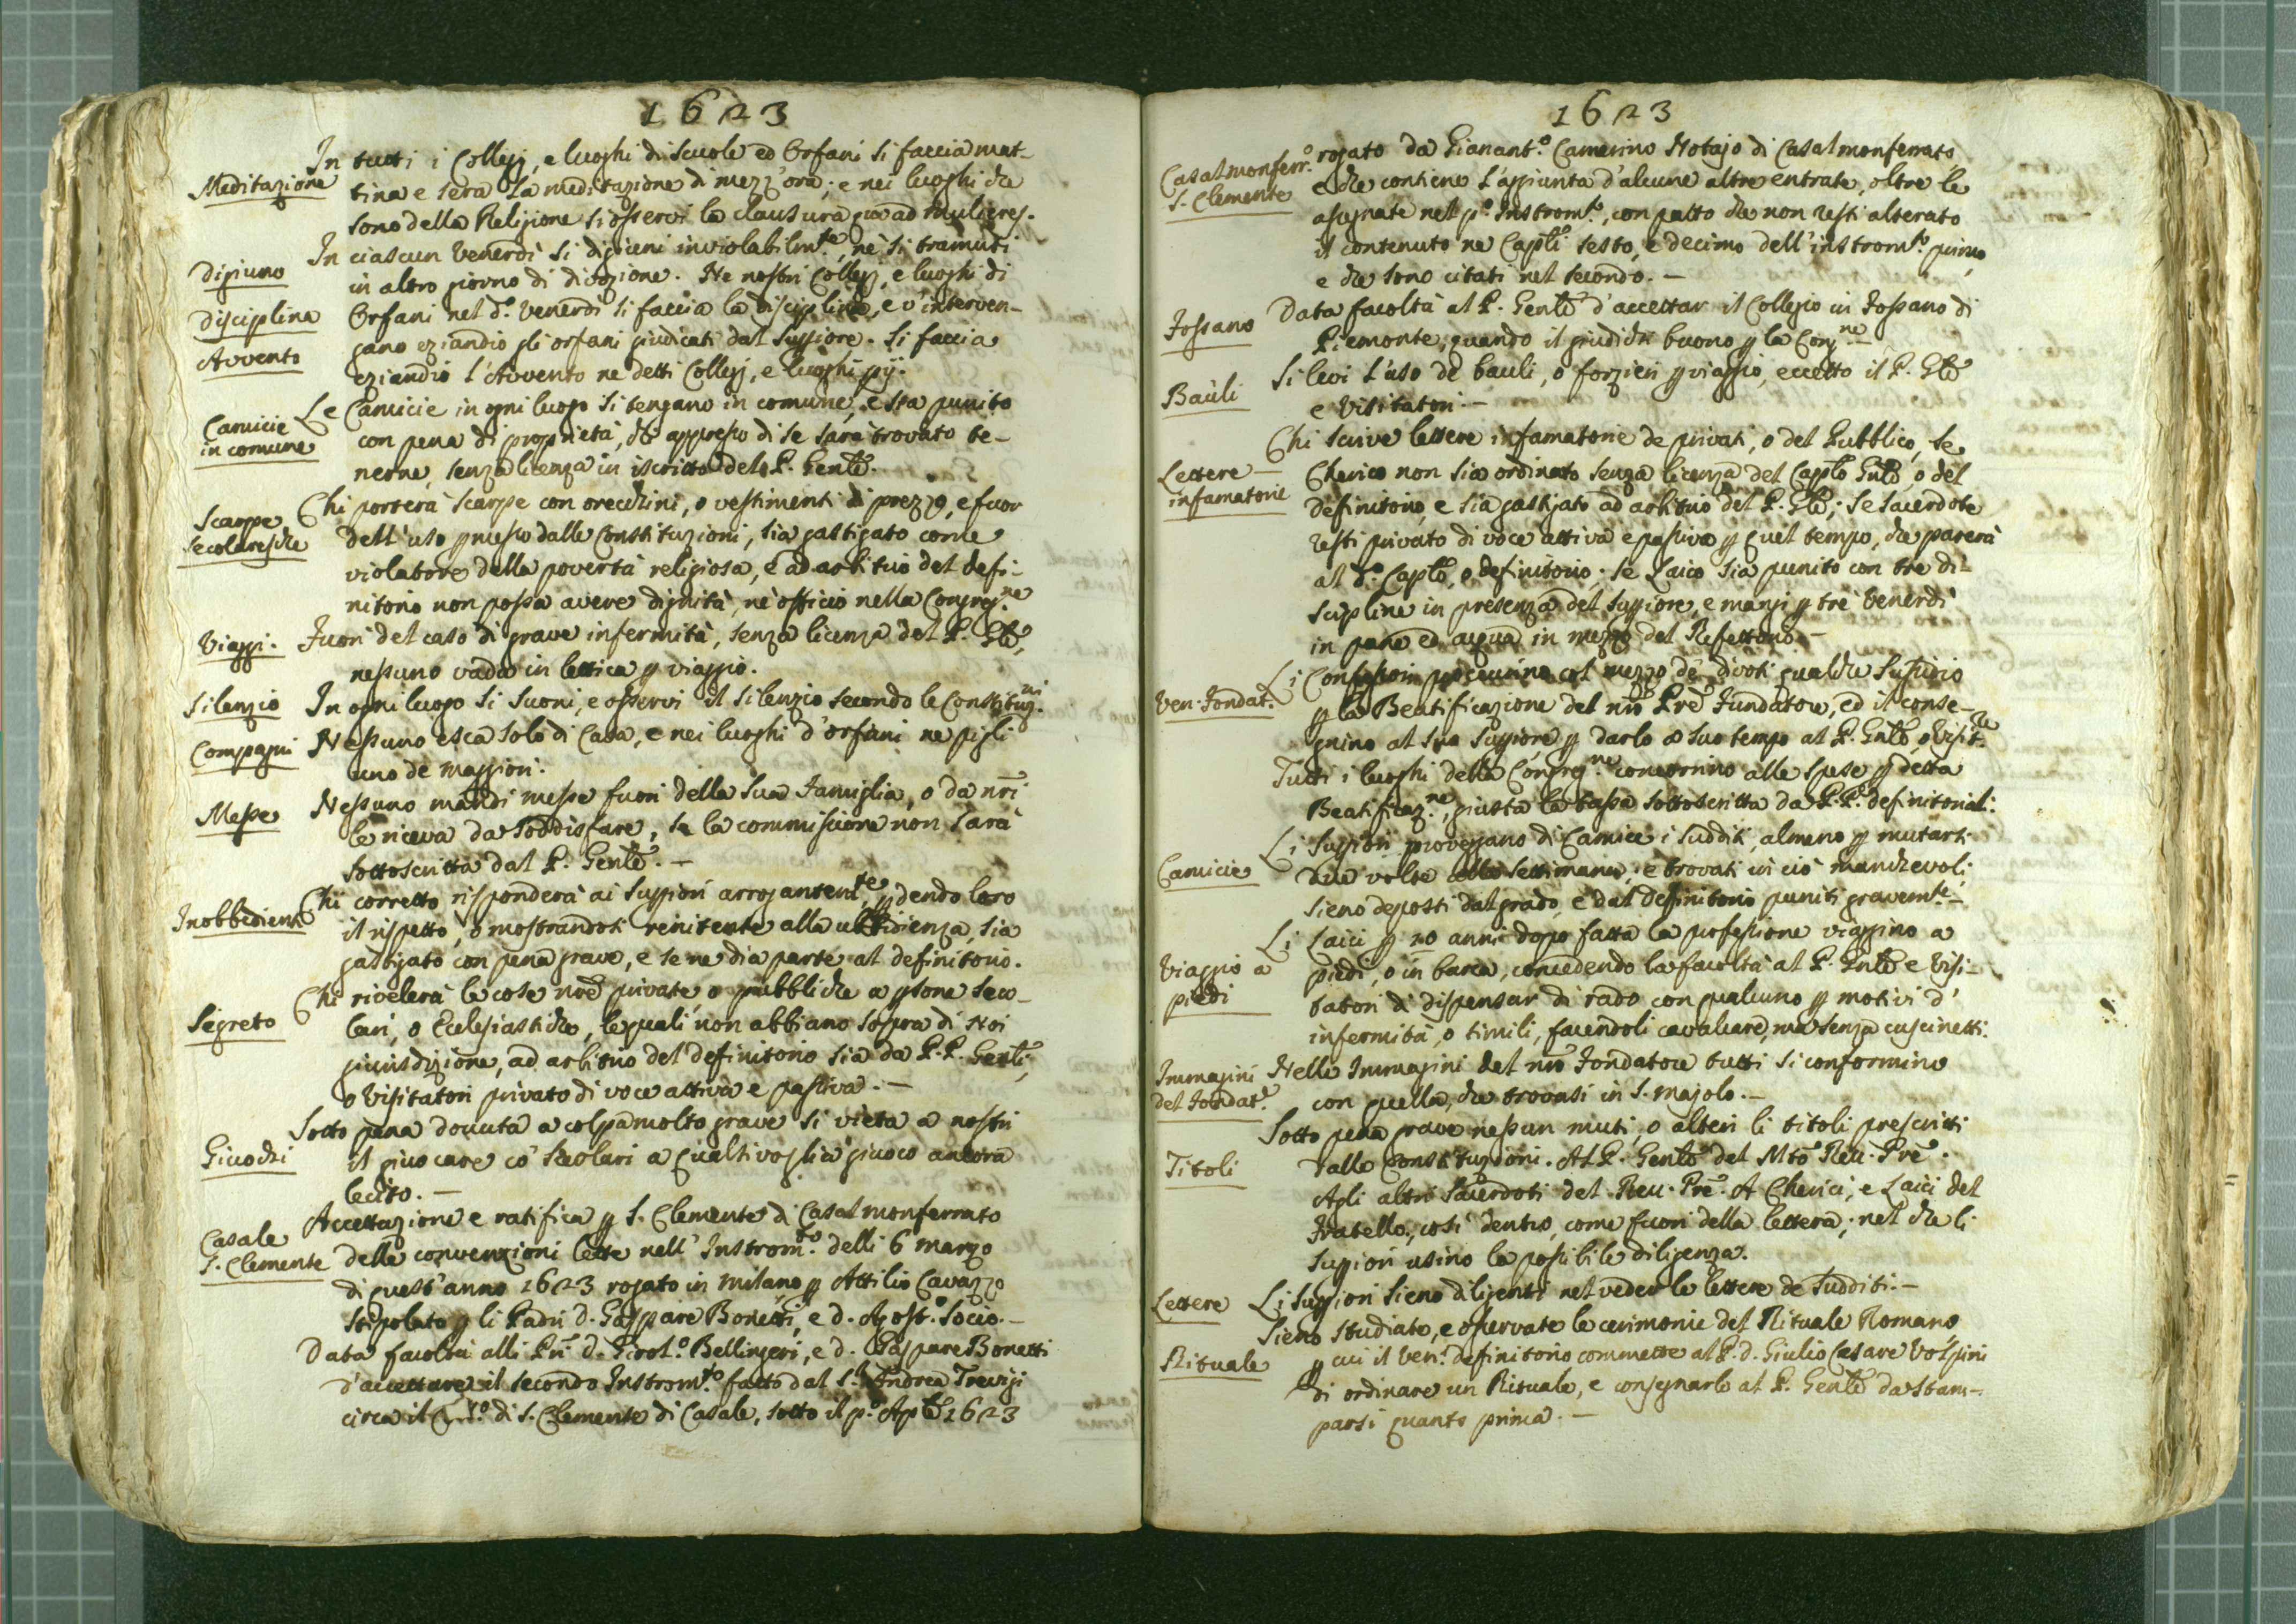 1623
Meditazione
In tutti i Collegj, e luoghi di scuole ed Orfani si faccia mat-
tina e sera la meditazione di mezz'ora; e nei luoghi che
sono della Religione si osservi la clausura quoad mulieres.
Digiuno
In ciascun Venerdì si digiuni inviolabilm.te, nè si tramuti
in altro giorno di divozione. Ne nostri Collegj, e luoghi di
Disciplina
Orfani nel d.o Venerdì si faccia la disciplina, e v'interven-
gano eziandio gli orfani giudicati dal Suppiore. Si faccia
Avvento
eziandio l'Avvento ne detti Collegj, e luoghi pij.
Camicie
in comune
Le Camicie in ogni luogo si tengano in comune, e sia punito
con pena di proprietà, chi appresso di se sarà trovato te-
nerne, senza licenza in iscritto del P. Genle.
Scarpe
secolaresche
Chi porterà scarpe con orecchini, o vestimenti di prezzo, e fuor
dell'uso pmesso dalle Constituzioni, sia gastigato come
violatore della povertà religiosa, e ad arbitrio del defi-
nitorio non possa avere dignità, nè officio nella Congreg.ne
Viaggi.
Fuori del caso di grave infermità, senza licenza del P. Gle,
nessuno vada in lettica p viaggio.
Silenzio
In ogni luogo si suoni, e osservi il silenzio secondo le Constituz.ni
Compagni
Nessuno esca solo di Casa, e nei luoghi d'orfani ne pigli
uno de maggiori.
Messe
Nessuno mandi messe fuori della sua Famiglia, o da nri
le riceva da soddisfare, se la commissione non sarà
sottoscritta dal P. Genle. -
Inobbedienti
Chi corretto risponderà ai Suppiori arrogantem.te, pdendo loro
il rispetto, o mostrandosi renitente alla ubbidienza, sia
gastigato con pena grave, e se ne dia parte al definitorio.
Segreto
Chi rivelerà le cose nre private, o pubbliche a psone seco-
lari, o Eclesiastiche, le quali non abbiano sopra di Noi
giurisdizione, ad arbitrio del definitorio sia da P.P. Genli,
o Visitatori privato di voce attiva e passiva. -
Giuochi
Sotto pena dovuta a colpa molto grave si vieta a nostri
il giuocare co' Secolari a qualsivoglia giuoco ancora
lecito. -
Casale
S. Clemente
Accettazione e ratifica p S. Clemente di Casal monferrato
delle convenzioni lette nell'Instrom.to delli 6 marzo
di quest'anno 1623 rogato in Milano p Attilio Cavazzo
stipolato p li Padri D. Gaspare Bonetti, e D. Agost.o Socio. -
Data facoltà alli Pri D. Girol.o Bellingeri, e D. Gaspare Bonetti
d'accettare il secondo Instrom.to fatto dal S.r Andrea Trevigi
circa il di S. Clemente di Casale, sotto il p.o Aple 1623
1623
Casalmonferr.o
S. Clemente
rogato da Gianant.o Camerino Notajo di Casalmonferrato,
e che contiene l'aggiunta d'alcune altre entrate, oltre le
assegnate nel p.o Instrom.to, con patto che non resti alterato
il contenuto ne Capli sesto, e decimo dell'instrom.to primo,
e che sono citati nel secondo. -
Fossano
Data facoltà al P. Genle d'accettar il Collegio in Fossano di
Piemonte, quando il giudichi buono p la Cong.ne -
Bauli
Si levi l'uso de bauli, o forzieri p viaggio, eccetto il P. Gle
e Visitatori. -
Lettere -
infamatorie
Chi scrive lettere infamatorie de privati, o del Pubblico, se
Cherico non sia ordinato senza licenza del Caplo Gnle, o del
definitorio, e sia gastigato ad arbitrio del P. Gle; se sacerdote
resti privato di voce attiva e passiva p quel tempo, che parerà
al d.o Caplo, o definitorio; se Laico sia punito con tre di-
scipline in presenza del Suppiore, e mangi p tre Venerdì
in pane ed acqua in mezzo del Refettorio. -
Ven. Fondat.e
Li Confessori procurino col mezzo de divoti qualche sussidio
p la Beatificazione del nro Pre Fundatore, ed il conse-
gnino al suo Suppiore p darlo a suo tempo al P. Gnle, o Visit.re
Tutti i luoghi della Congreg.ne concorrino alle spese p detta
Beatificaz.ne, giusta la tassa sottoscritta da P.P. definitoriali.
Camicie
Li Suppiori proveggano di Camice i Sudditi, almeno p mutarsi
due volte alla settimana, e trovati in ciò manchevoli;
sieno deposti dal grado, e dal Definitorio puniti gravem.te -
Viaggio a
piedi
Li Laici p 20 anni dopo fatta la professione viaggino a
piedi, o in barca, concedendo la facoltà al P. Gnle e Visi-
tatori di dispensar di rado con qualcuno p motivi d'
infermità, o simili, facendoli cavalcare, ma senza cuscinetti.
Immagini
del Fondat.e
Nelle Immagini del nro Fondatore tutti si conformino
con quella, che trovasi in S. Majolo. -
Titoli
Sotto pena grave nessun muti, o alteri li titoli prescritti
dalle Constituzioni. Al P. Genle del Mto Rev. Pre.
Agli altri Sacerdoti del Rev. Pre. A Cherici, e Laici del
Fratello, così dentro, come fuori della lettera; nel che li
Suppiori usino la possibile diligenza.
Lettere
Li Suppiori sieno diligenti nel veder le lettere de Sudditi. -
Rituale
Sieno studiate, e osservate le cerimonie del Rituale Romano,
p cui il Ven. definitorio commette al P. D. Giulio Cesare Volpini
di ordinare un Rituale, e consegnarlo al P. Genle da stam-
parsi quanto prima. -